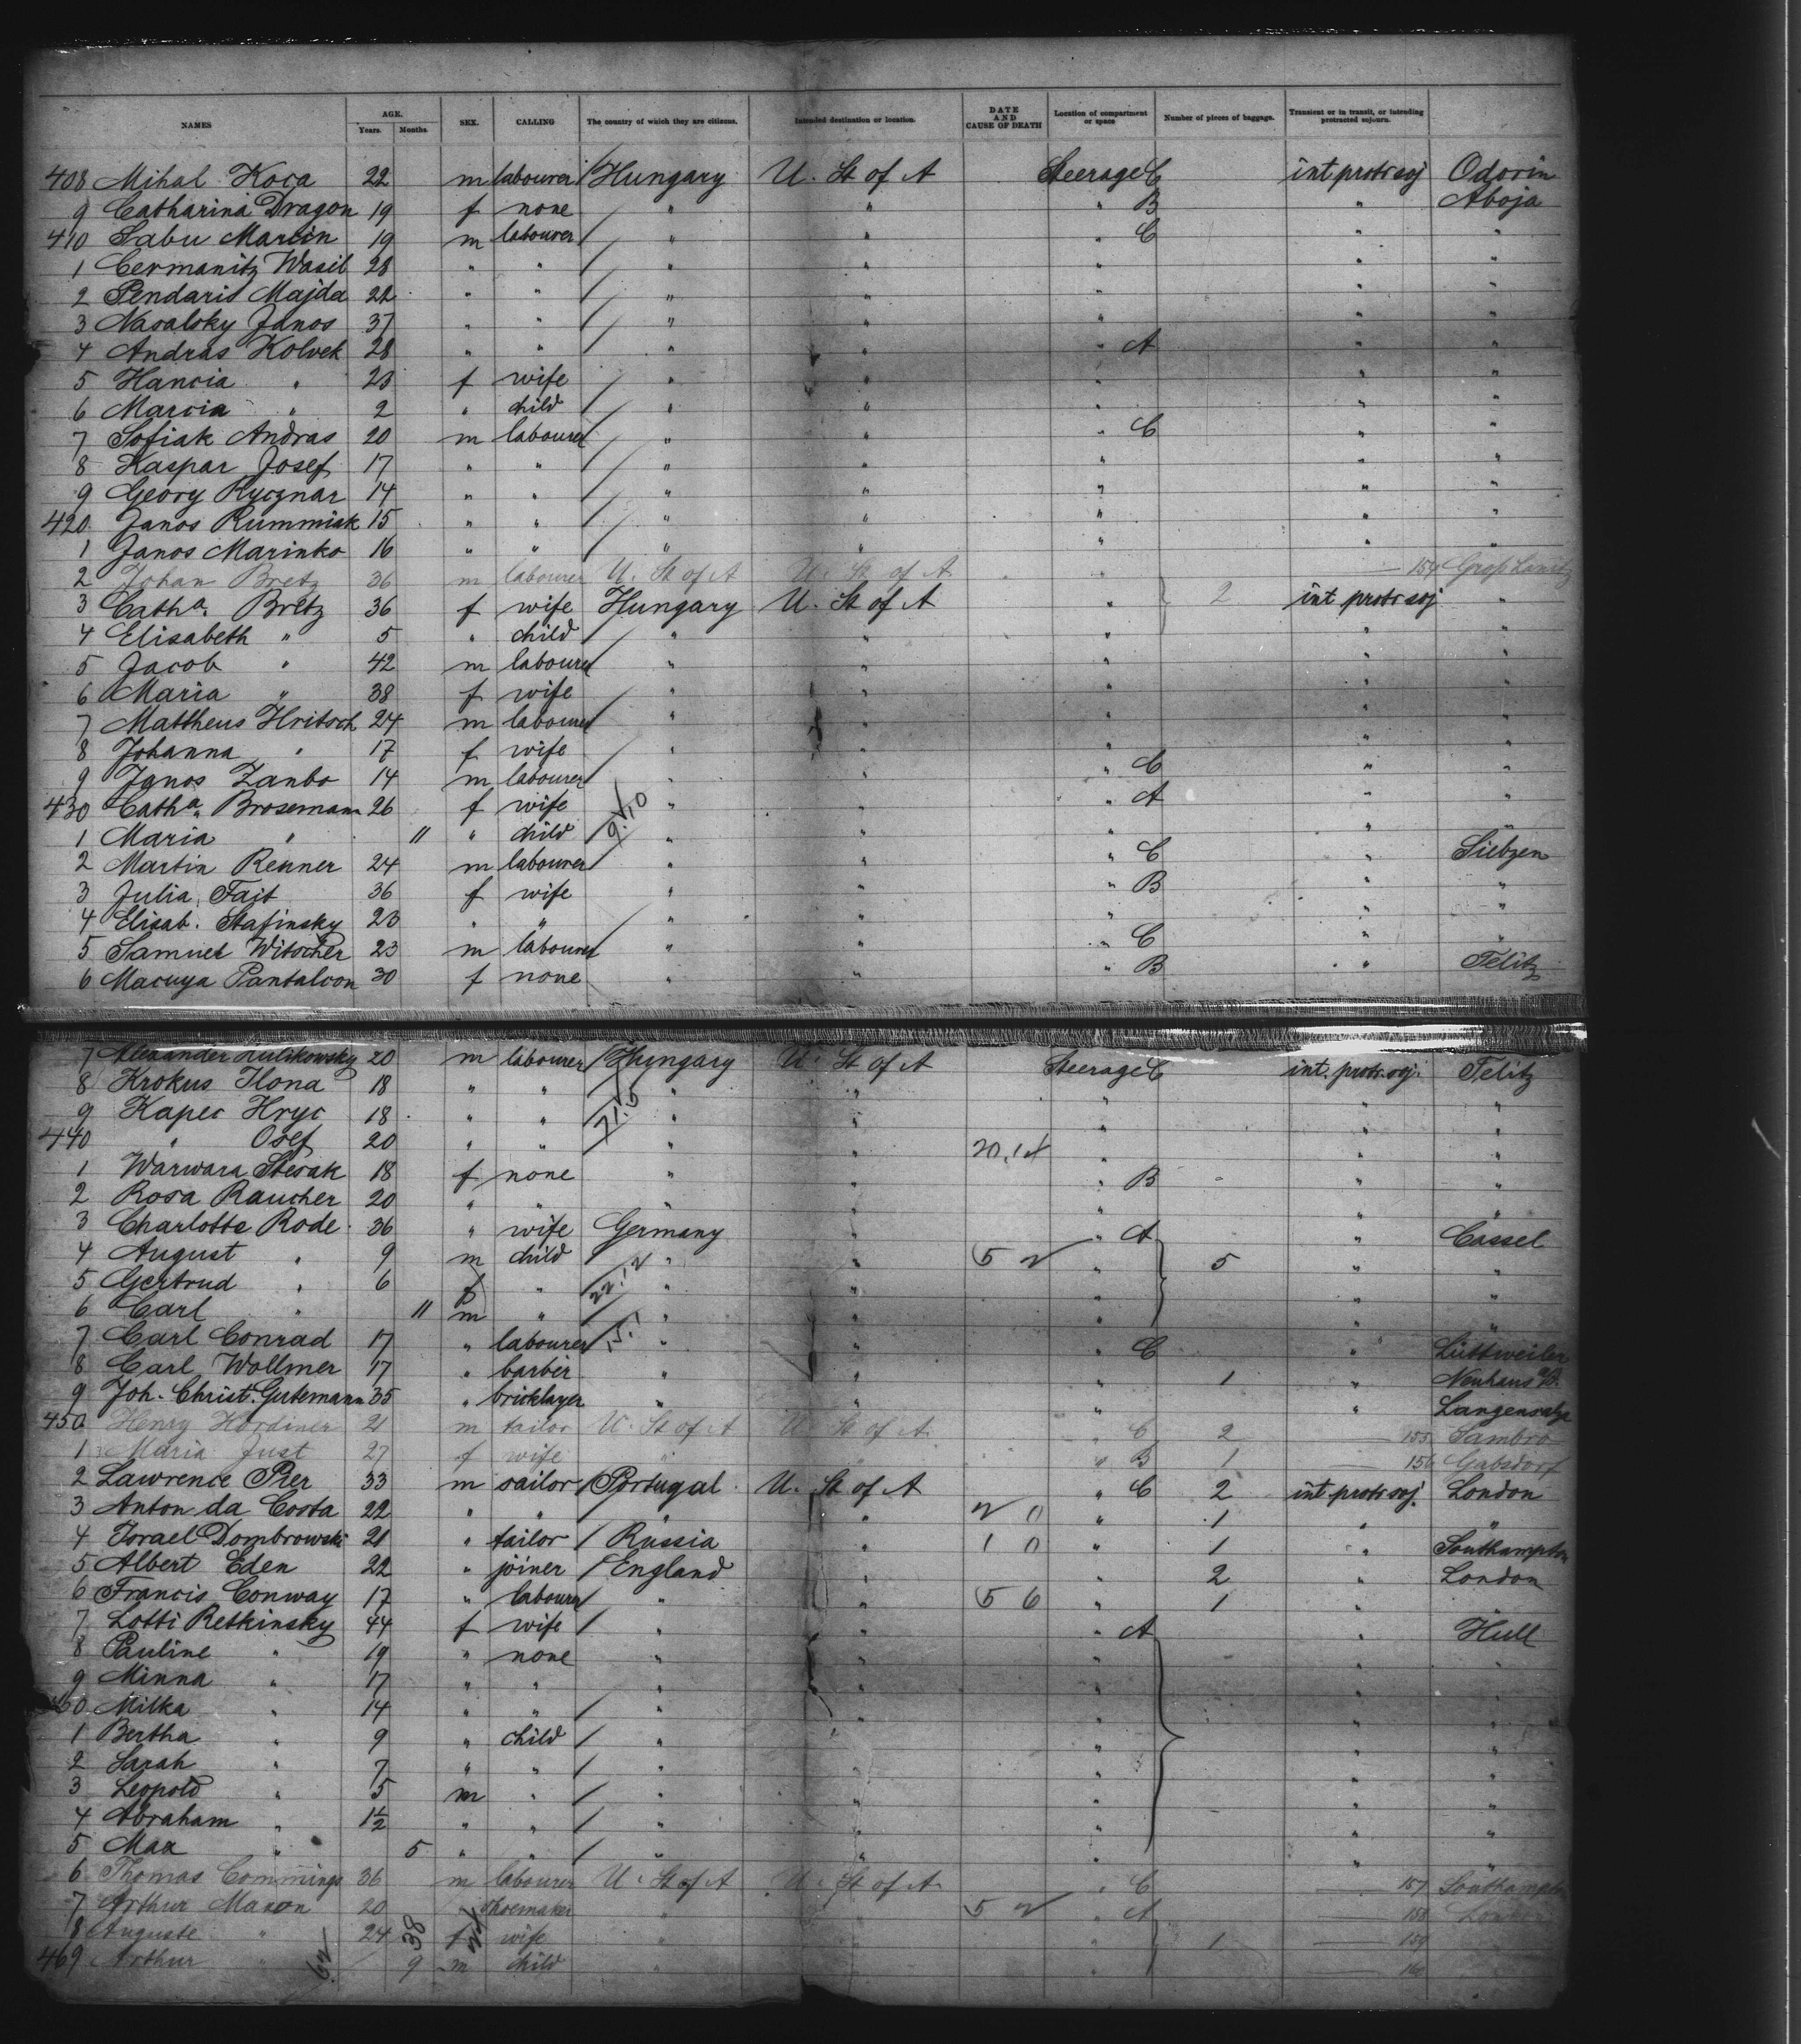 NAMES AGE. Years. Months. SEX. CALLING The country of which they are citizens. Intended destination or location. DATE AND CAUSE OF DEATH Location of compartment or space Number of pieces of baggage. Transient or in transit, or intending protracted sojourn.
408 Mihal Koca 22 m labourer Hungary U. St of A Steerage C int protr soj Odorin
9 Catharina Dragon 19 f none " " " B " Aboja
410 Sabu Martin 19 m labourer " " " C " "
1 Cermanitz Wasil 28 " " " " " " "
2 Pendaris Majda 22 " " " " " " "
3 Nasalsky Janos 37 " " " " " " "
4 Andras Kolvek 28 " " " " " A " "
5 Hancia " 23 f wife " " " " "
6 Marcia " 2 " child " " " " "
7 Sofiak Andras 20 m labourer " " " C " "
8 Kaspar Josef 17 " " " " " " "
9 Georg Rycznar 14 " " " " " " "
420 Janos Rummiak 15 " " " " " " "
1 Janos Marinko 16 " " " " " " "
2 Johan Bretz 36 m labourer U. St of A U. St of A " 154
3 Catha. Bretz 36 f wife Hungary U. St of A " 2 int protr soj "
4 Elisabeth " 5 " child " " " " "
5 Jacob " 42 m labourer " " " " "
6 Maria " 38 f wife " " " " "
7 Mattheus Hritsch 24 m labourer " " " " "
8 Johanna " 17 f wife " " " " "
9 Janos Zanbo 14 m labourer " " " C " "
430 Catha. Brosemann 26 f wife " " " A " "
1 Maria " 11 " child " " " " "
2 Martin Renner 24 m labourer " " " C " Siebzen
3 Julia Fajt 36 f wife " " " B " "
4 Elisab. Stafinsky 23 " " " " " " "
5 Samuel Witscher 23 m labourer " " " C " "
6 Macuya Pantaloon 30 f none " " " B " Telitz
7 Alexander Kulikowsky 20 m labourer Hungary U. St of A Steerage C int. protr. soj. Telitz
8 Krokus Ilona 18 " " " " " " "
9 Kapec Hryc 18 " " " " " " "
440 " Osef 20 " " " " " " "
1 Warwara Stesak 18 f none " " " B " "
2 Rosa Raucher 20 " " " " " " "
3 Charlotte Rode 36 " wife Germany " " A " Cassel
4 August " 9 m child " " " 5 " "
5 Gertrud " 6 f " " " " " "
6 Carl " 11 m " " " " " "
7 Carl Conrad 17 " labourer " " " C " Lüttweiler
8 Carl Wollmer 17 " barbier " " " 1 " Neuhaus
9 Joh. Christ. Gutemann 35 " bricklayer " " " " Langensalza
450 Henry Hordiner 21 m tailor U. St of A U. St of A " C 2 155 Sambro
1 Maria Just 27 f wife " " " B 1 156 Gabsdorf
2 Lawrence Pier 33 m sailor Portugal U. St of A " C 2 int protr soj. London
3 Anton da Costa 22 " " " " " 1 " "
4 Israel Dombrowski 21 " tailor Russia " " 1 " Southampton
5 Albert Eden 22 " joiner England " " 2 " London
6 Francis Conway 17 " labourer " " 5 6 " 1 " "
7 Lotti Retkinsky 44 f wife " " " A " Hull
8 Pauline " 19 " none " " " " "
9 Minna " 17 " " " " " " "
460 Milka " 14 " " " " " " "
1 Bertha " 9 " child " " " " "
2 Sarah " 7 " " " " " " "
3 Leopold " 5 m " " " " " "
4 Abraham " 1½ " " " " " " "
5 Max " 5 " " " " " " "
6 Thomas Commings 36 m labourer U. St of A U. St of A " C 157 Southampton
7 Arthur Mason 20 " shoemaker " " " A 158 London
8 Auguste " 24 f wife " " 1 159
469 Arthur " 9 m child " " 160